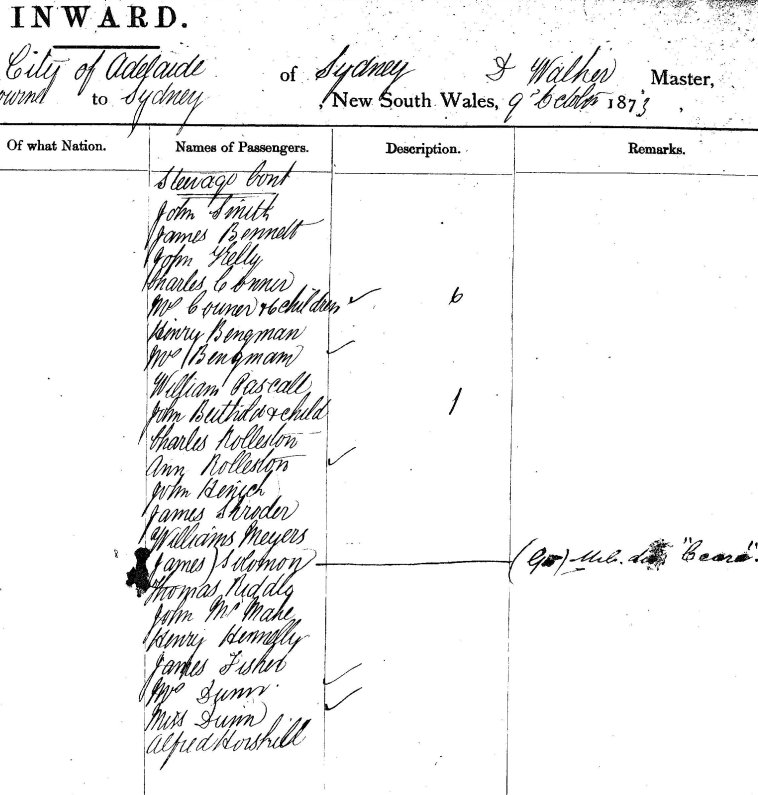 INWARD.
City of Adelaide of Sydney D Walker Master,
to Sydney , New South Wales, 9 October 1873 .
Of what Nation. Names of Passengers. Description. Remarks.
Steerage Cont
John Smith
James Bennett
John Kelly
Charles Conner
Mrs Conner & 6 children 6
Henry Bengman
Mrs Bengmam
William Pascall
John & child 1
Charles Rolleston
Ann Rolleston
John
James Shroder
Williams Meyers
James Solomon
Thomas Riddly
John McMahe
Henry Hennelly
James Fisher
Mrs Dunn
Miss Dunn
Alfred Horskill